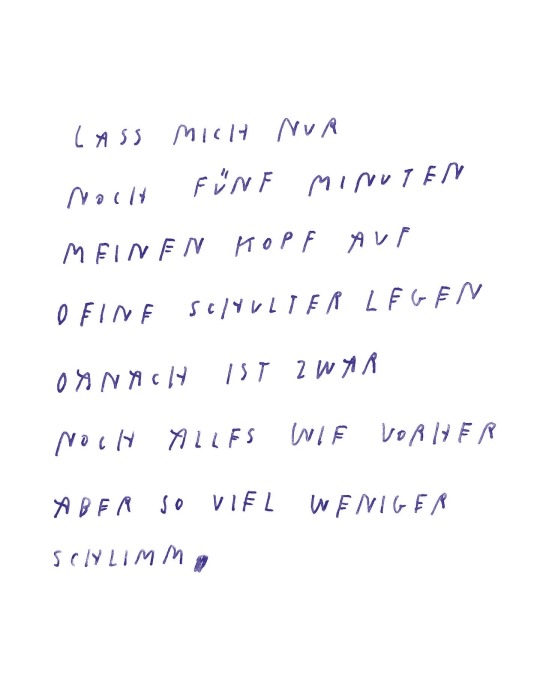 LASS MICH NUR
NOCH FÜNF MINUTEN
MEINEN KOPF AUF
DEINE SCHULTER LEGEN
DANACH IST ZWAR
NOCH ALLES WIE VORHER
ABER SO VIEL WENIGER
SCHLIMM.